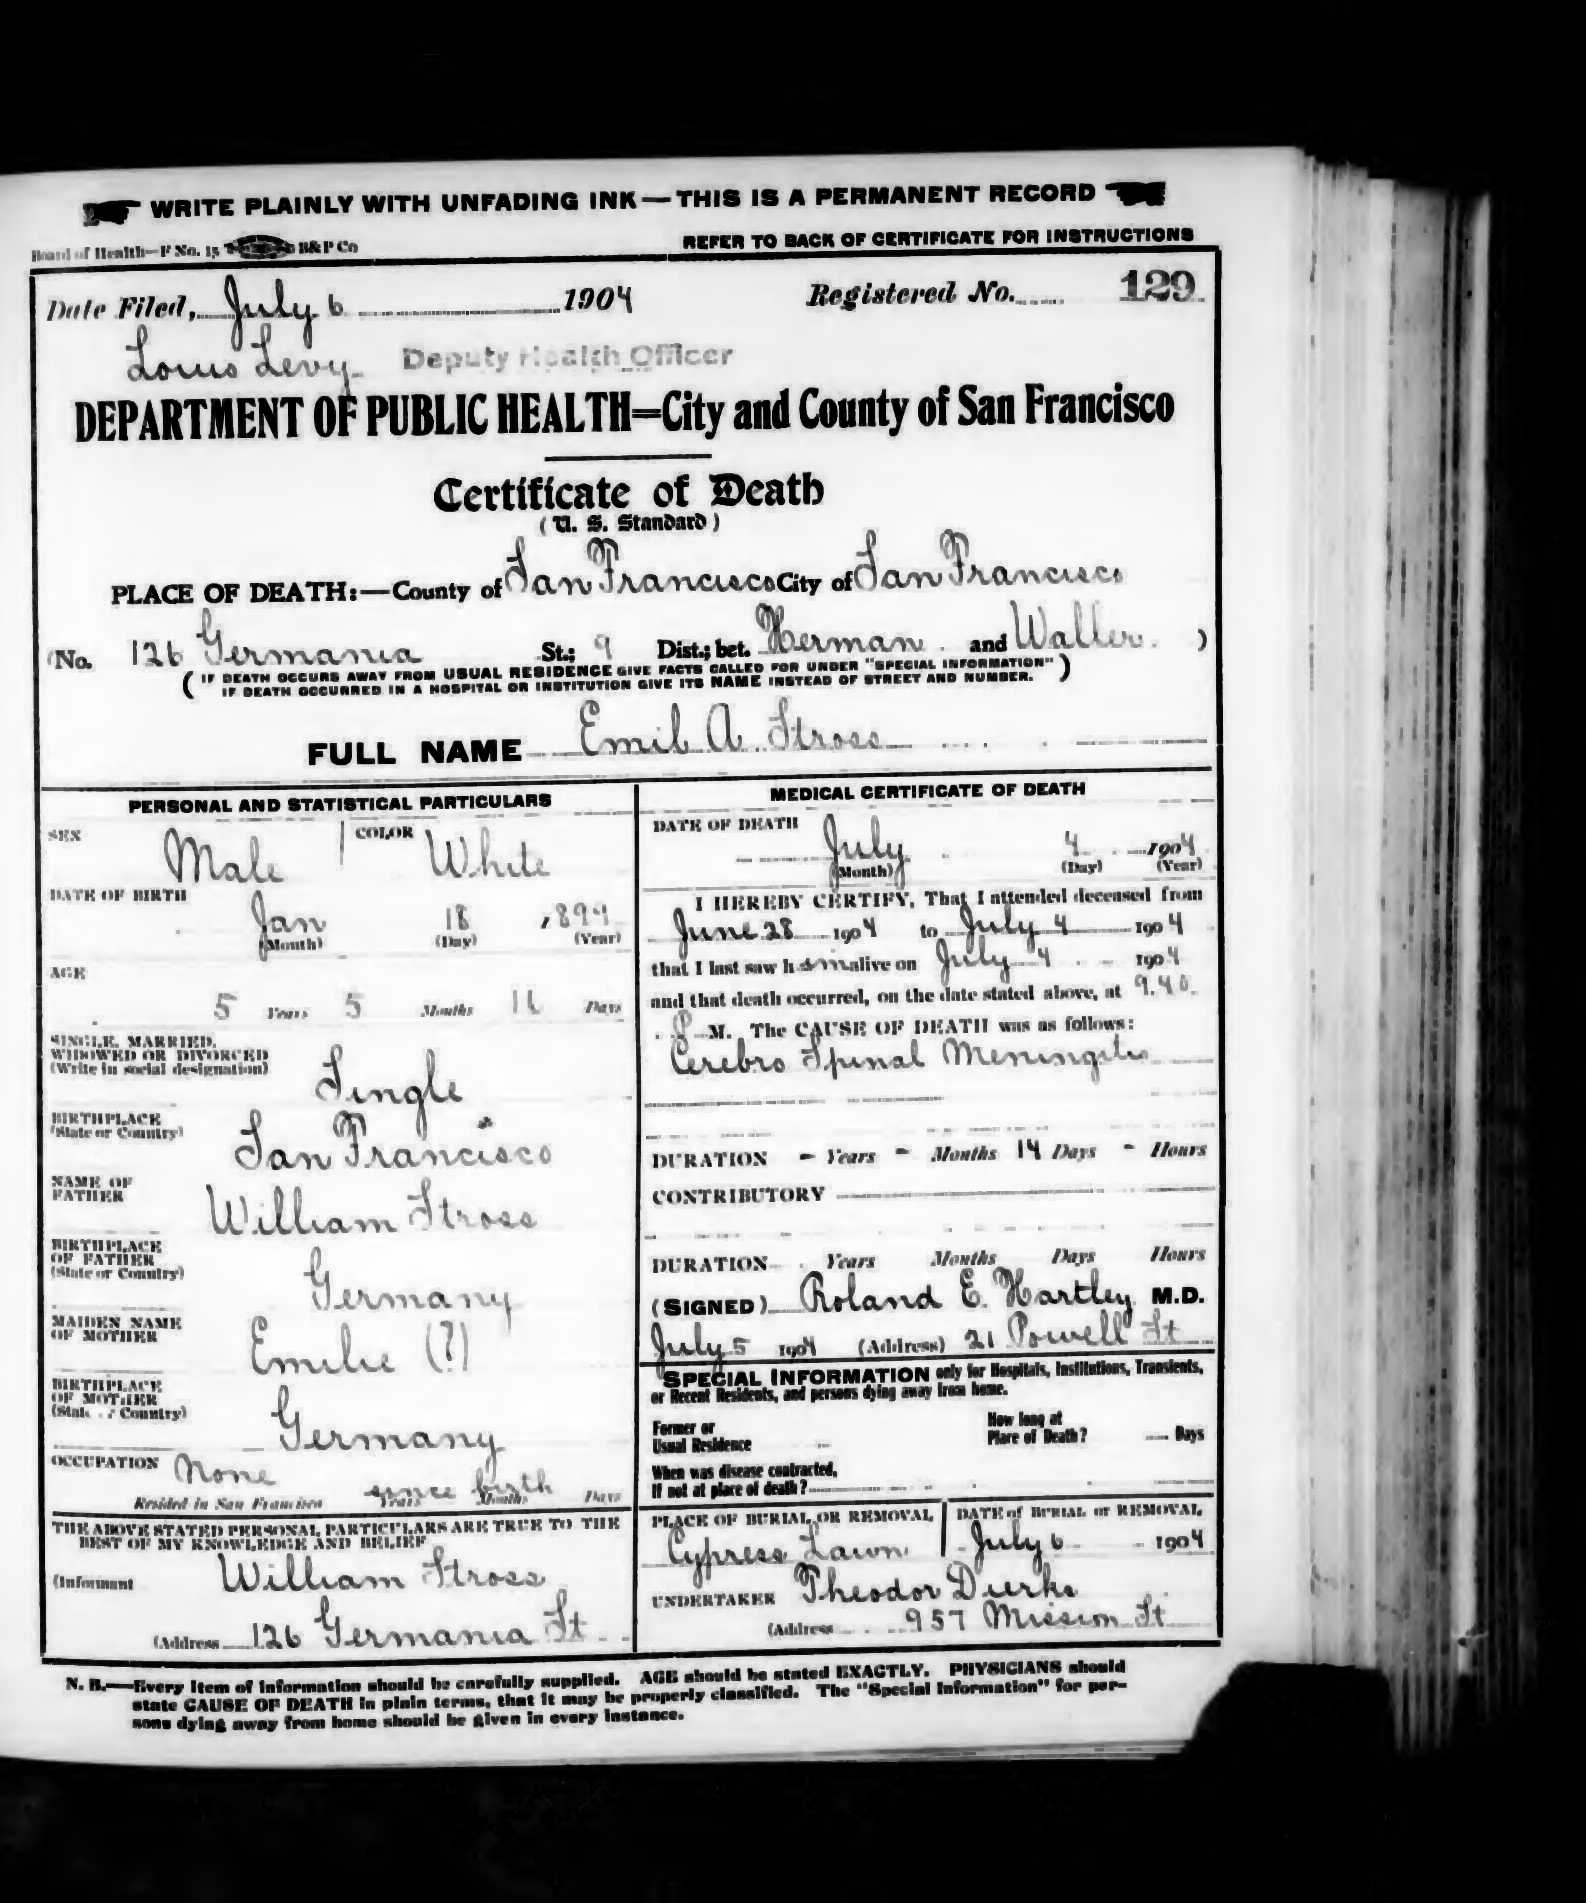 WRITE PLAINLY WITH UNFADING INK—THIS IS A PERMANENT RECORD
Board of Health—F No. 15 B&P Co
REFER TO BACK OF CERTIFICATE FOR INSTRUCTIONS
Date Filed, July 6 1904 Registered No. 129
Louis Levy Deputy Health Officer
DEPARTMENT OF PUBLIC HEALTH=City and County of San Francisco
Certificate of Death
(U. S. Standard)
PLACE OF DEATH:—County of San Francisco City of San Francisco
(No. 126 Germania St.; 9 Dist.; bet. Herman and Waller )
( IF DEATH OCCURS AWAY FROM USUAL RESIDENCE GIVE FACTS CALLED FOR UNDER "SPECIAL INFORMATION" )
IF DEATH OCCURRED IN A HOSPITAL OR INSTITUTION GIVE ITS NAME INSTEAD OF STREET AND NUMBER.
FULL NAME Emil A. Stross
PERSONAL AND STATISTICAL PARTICULARS
SEX Male COLOR White
DATE OF BIRTH
Jan 18 1899
(Month) (Day) (Year)
AGE
5 Years 5 Months 16 Days
SINGLE, MARRIED,
WIDOWED OR DIVORCED
(Write in social designation)
Single
BIRTHPLACE
(State or Country)
San Francisco
NAME OF
FATHER
William Stross
BIRTHPLACE
OF FATHER
(State or Country)
Germany
MAIDEN NAME
OF MOTHER
Emilie (?)
BIRTHPLACE
OF MOTHER
(State or Country)
Germany
OCCUPATION None
Resided in San Francisco since birth Years Months Days
THE ABOVE STATED PERSONAL PARTICULARS ARE TRUE TO THE
BEST OF MY KNOWLEDGE AND BELIEF
(Informant William Stross
(Address 126 Germania St
MEDICAL CERTIFICATE OF DEATH
DATE OF DEATH
July 4 1904
(Month) (Day) (Year)
I HEREBY CERTIFY, That I attended deceased from
June 28 1904 to July 4 1904
that I last saw him alive on July 4 1904
and that death occurred, on the date stated above, at 9.40
P M. The CAUSE OF DEATH was as follows:
Cerebro Spinal Meningitis
DURATION - Years - Months 14 Days - Hours
CONTRIBUTORY
DURATION Years Months Days Hours
(SIGNED) Roland E. Hartley M.D.
July 5 1904 (Address) 21 Powell St
SPECIAL INFORMATION only for Hospitals, Institutions, Transients,
or Recent Residents, and persons dying away from home.
Former or
Usual Residence
How long at
Place of Death? Days
When was disease contracted,
If not at place of death?
PLACE OF BURIAL OR REMOVAL
Cypress Lawn
DATE of BURIAL or REMOVAL
July 6 1904
UNDERTAKER Theodor Dierks
(Address 957 Mission St
N. B.—Every item of information should be carefully supplied. AGE should be stated EXACTLY. PHYSICIANS should
state CAUSE OF DEATH in plain terms, that it may be properly classified. The "Special Information" for per-
sons dying away from home should be given in every instance.